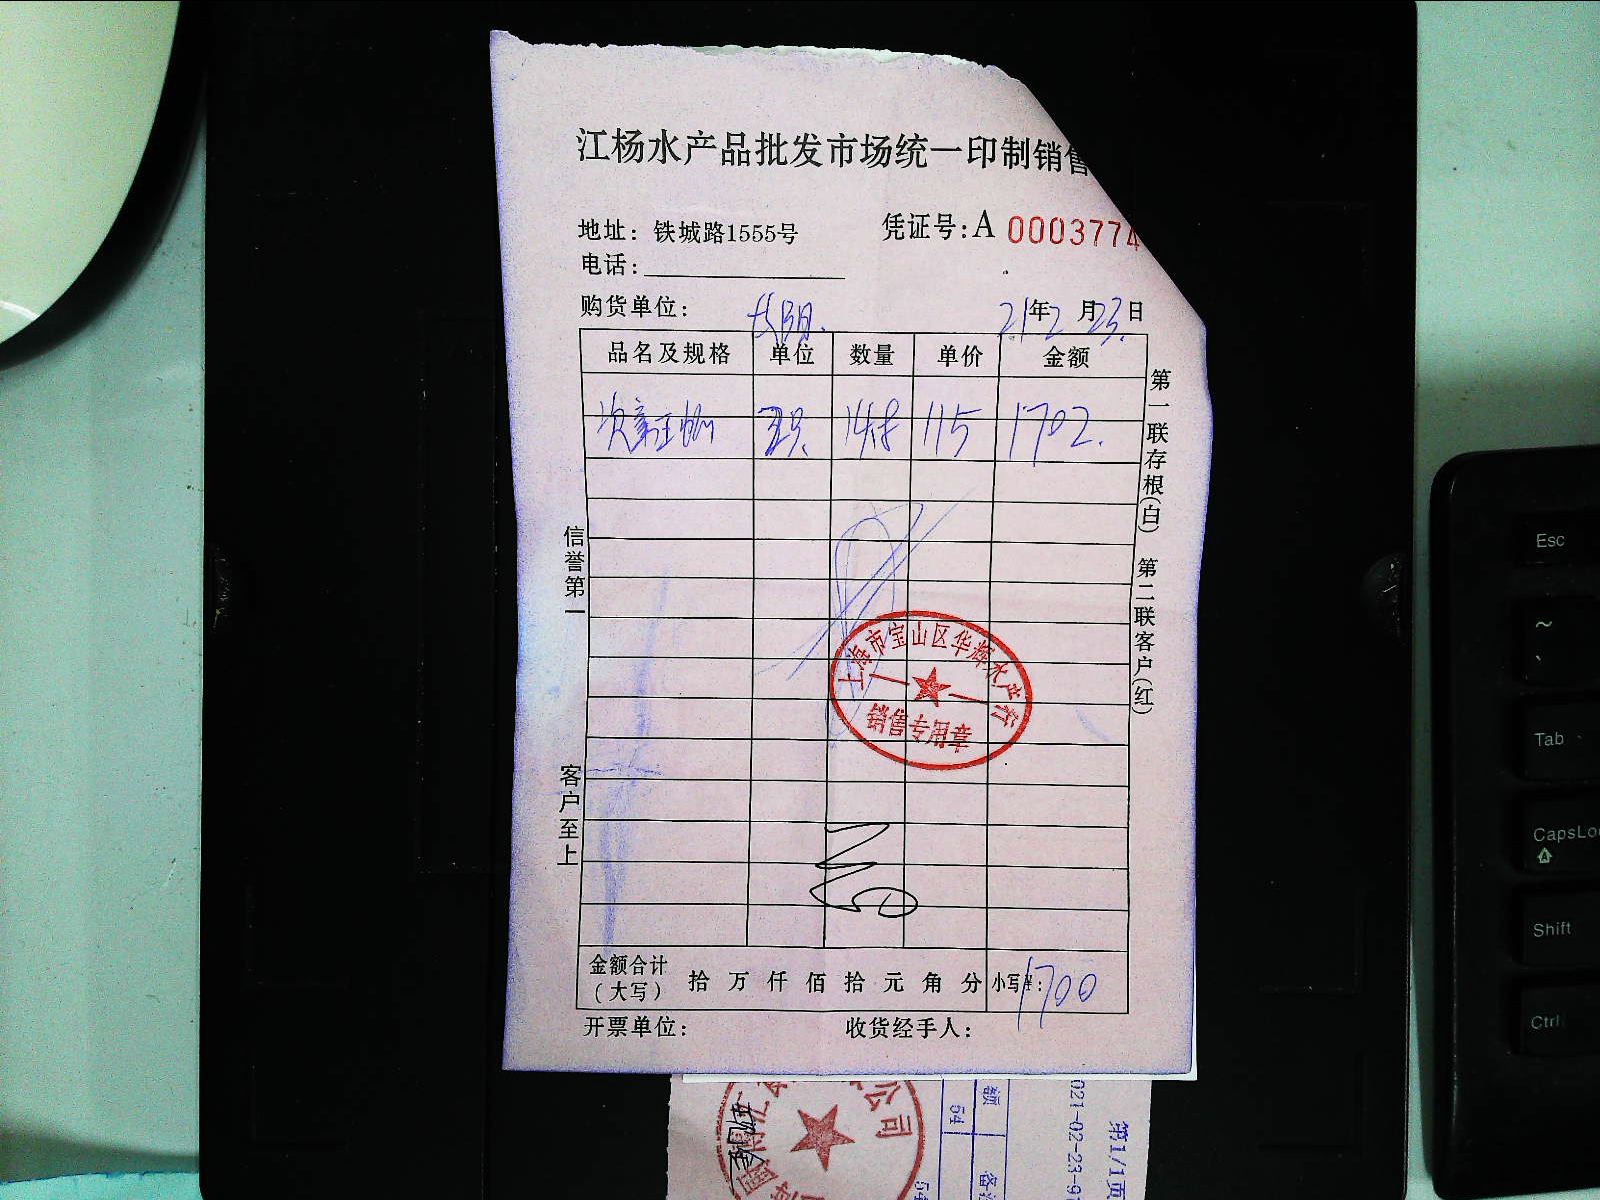 江杨水产品批发市场统一印制销售
地址：铁城路1555号
凭证号：A 0003774
电话：
购货单位：
21年2月23日
品名及规格 单位 数量 单价 金额
115 1702.
第一联存根(白) 第二联客户(红)
信誉第一
客户至上
上海市宝山区华辉水产行
销售专用章
金额合计(大写) 拾 万 仟 佰 拾 元 角 分 小写¥：1700
开票单位： 收货经手人：
公司
额
54
备
54
021-02-23-9
第1/1页
Esc
~
Tab
CapsLo
Shift
Ctrl